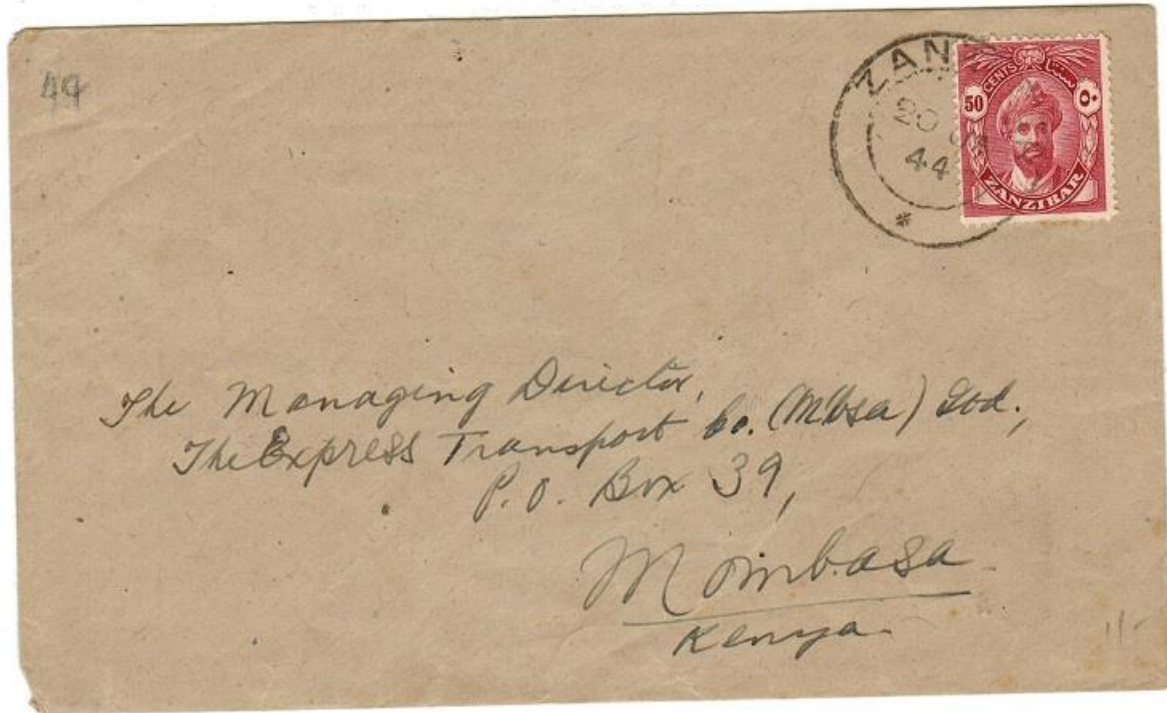 44
ZANZ
20
44
CENTS سنت
50 ٥٠
ZANZIBAR
The Managing Director,
The Express Transport Co. (Mbsa) Ltd.,
P.O. Box 39,
Mombasa
Kenya
1/-